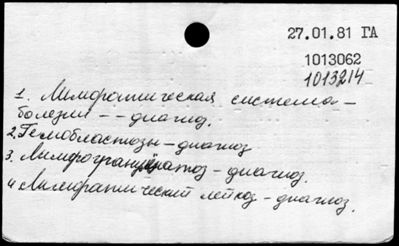 27.01.81 ГА
1013062
1013214
1. Лимфатическая система –
болезни -- диагноз.
2. Гемобластозы – диагноз
3. Лимфогранулематоз – диагноз.
4 Лимфатический лейкоз – диагноз.